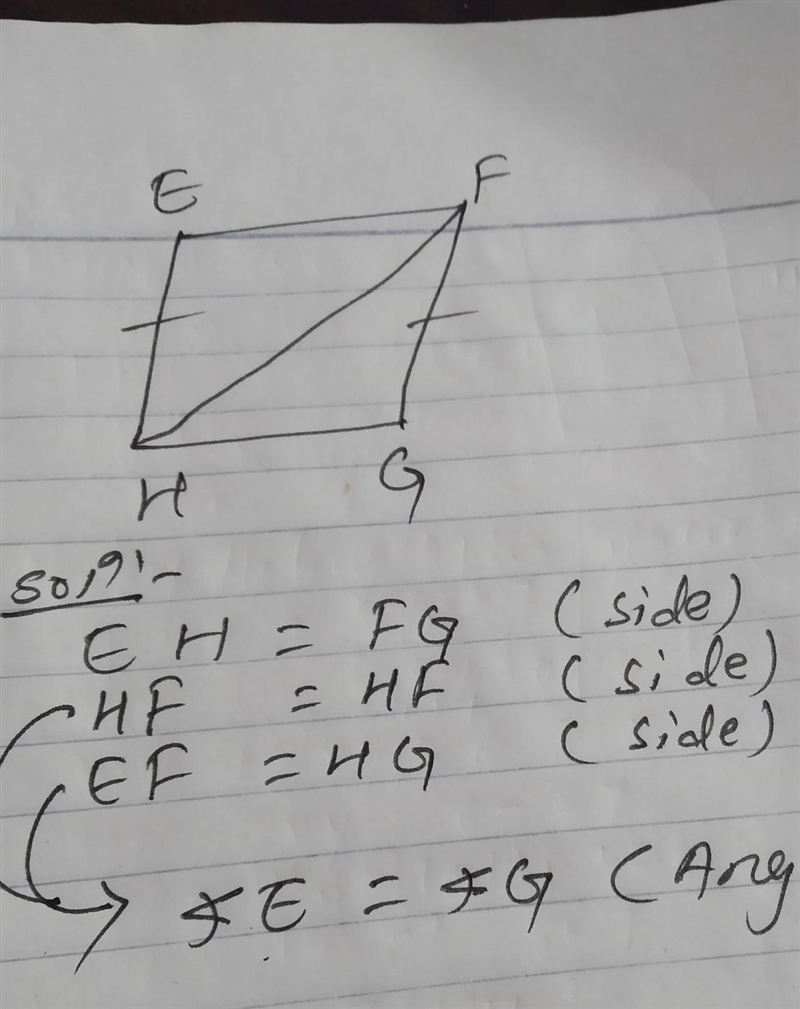 E F
H G
EH = FG (side)
HF = HF (side)
EF = HG (side)
∡E = ∡G (Ang